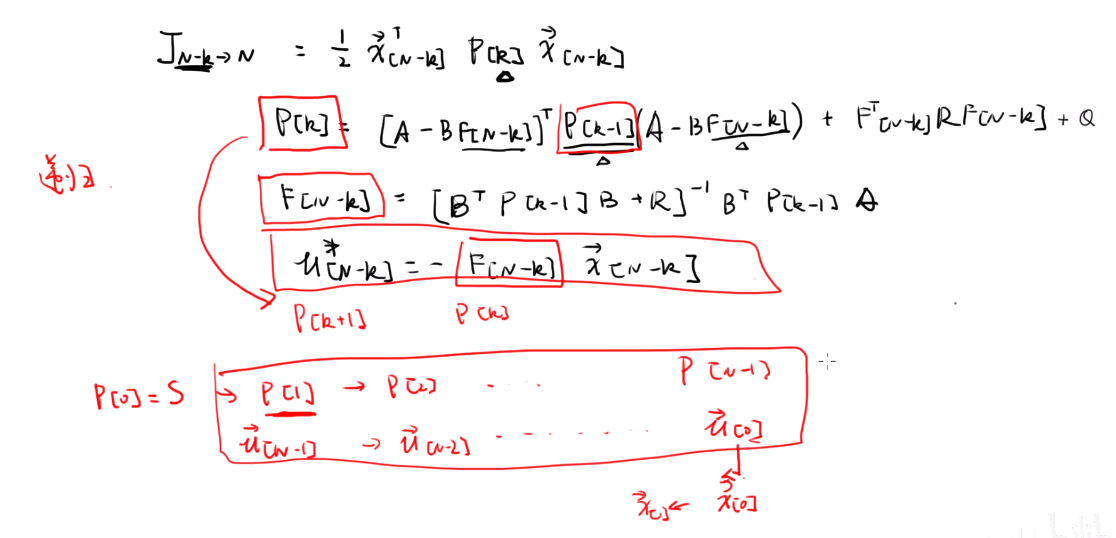 J_{N-k→N} = 1/2 x⃗ᵀ[N-k] P[k] x⃗[N-k]
P[k] = [A - BF[N-k]]ᵀ P[k-1] (A - BF[N-k]) + Fᵀ[N-k] R F[N-k] + Q
F[N-k] = [Bᵀ P[k-1] B + R]⁻¹ Bᵀ P[k-1] A
u*[N-k] = - F[N-k] x⃗[N-k]
P[k+1] P[k]
P[0] = S → P[1] → P[2] ..... P[N-1]
u⃗[N-1] → u⃗[N-2] ........ u⃗[0]
x⃗[0]